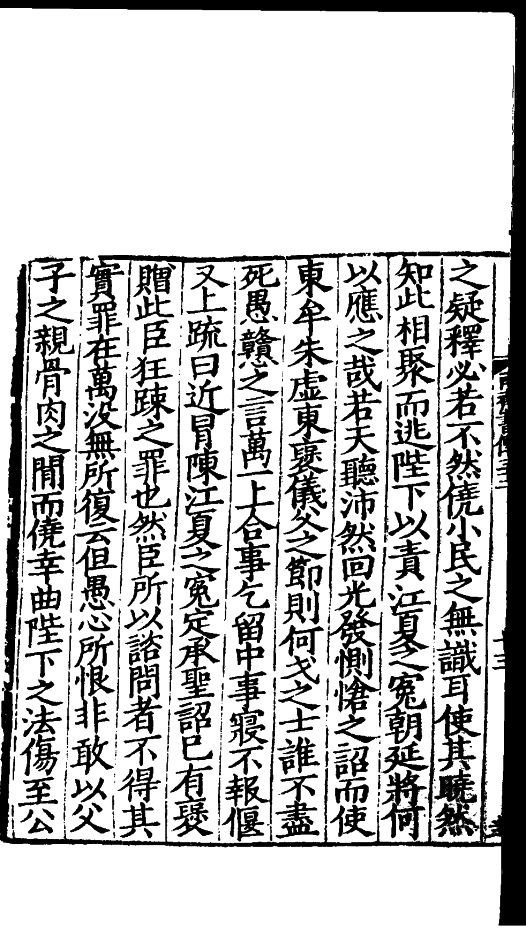 之疑釋必若不然僥小民之無識耳使其曉然
知此相聚而逃陛下以責江夏之冤朝廷將何
以應之哉若天聽沛然回光發惻愴之詔而使
東牟朱虛東褒儀父之節則何戈之士誰不盡
死愚戇之言萬一上合事乞留中事寢不報偃
又上疏曰近冒陳江夏之冤定承聖詔已有褒
贈此臣狂踈之罪也然臣所以諮問者不得其
實罪在萬没無所復云但愚心所恨非敢以父
子之親骨肉之閒而僥幸曲陛下之法傷至公